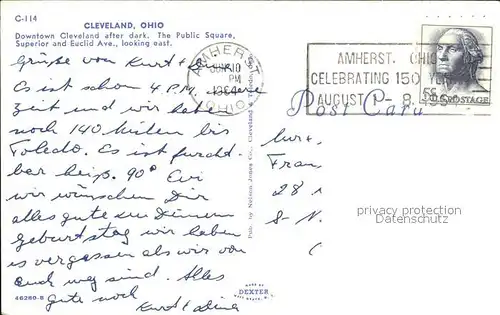 C-114
CLEVELAND, OHIO
Downtown Cleveland after dark. The Public Square,
Superior and Euclid Ave., looking east.
Grüße von Kurt +
Es ist schon 4 P.M.
Zeit und wir haben
noch 140 Meilen bis
Toledo. Es ist furcht-
bar heiß. 90°
wir wünschen Dir
alles gute zu Deinem
Geburtstag wir haben
es vergessen als wir von
euch weg sind. Alles
gute noch
Kurt +
46280-B
MADE BY
DEXTER
Pub. by Nelson Jones Co., Cleveland
AMHERST
JUN 10
PM
1964
OHIO
AMHERST, OHIO
CELEBRATING 150
AUGUST 1 - 8,
5¢
U.S. POSTAGE
Post Card
Frau
28
8-
privacy protection
Datenschutz